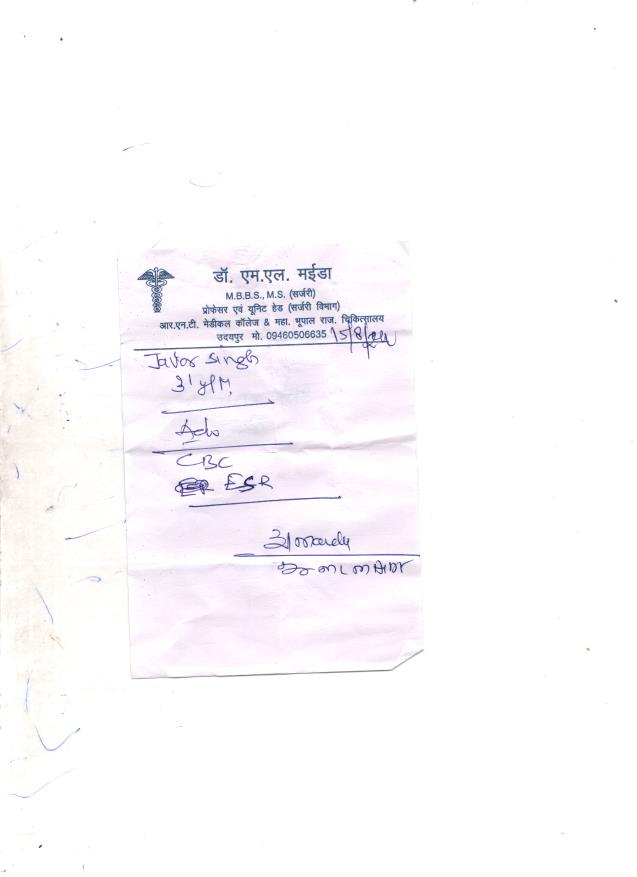 डॉ. एम.एल. मईडा
M.B.B.S., M.S. (सर्जरी)
प्रोफेसर एवं यूनिट हेड (सर्जरी विभाग)
आर.एन.टी. मेडीकल कॉलेज & महा. भूपाल राज. चिकित्सालय
उदयपुर मो. 09460506635 15/8/24
Singh
31 y/M
Adv
CBC
ESR